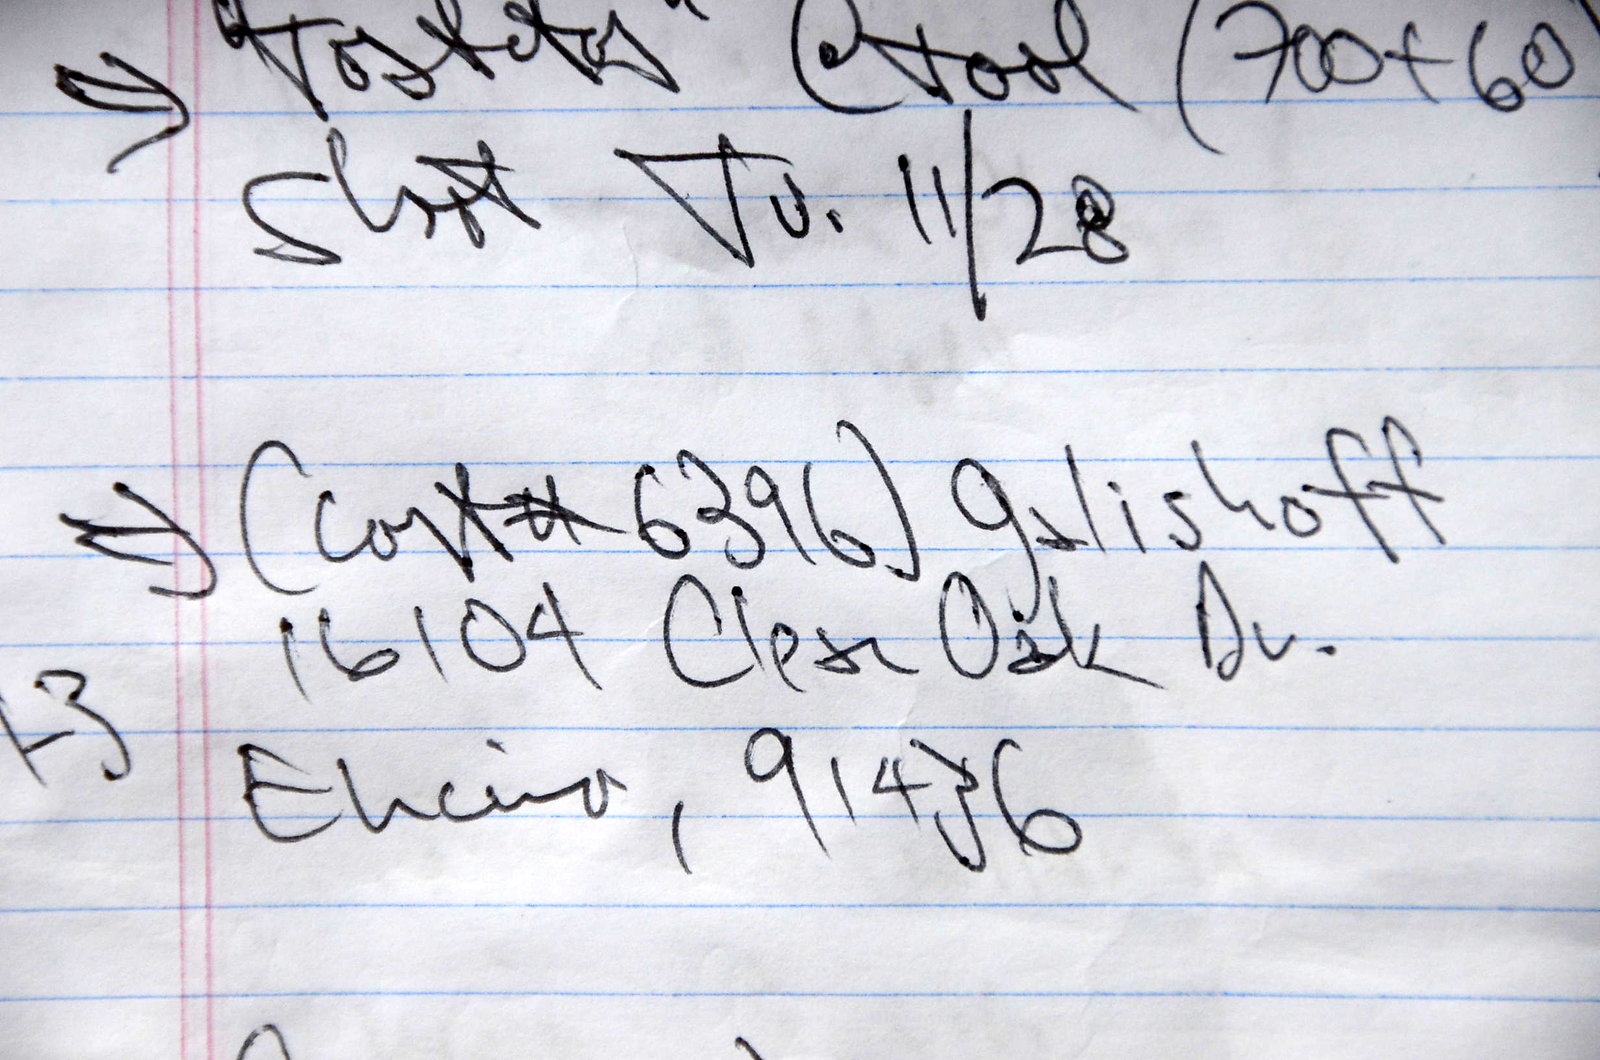 ⇒ "Tostitos" @ pool (700+60)
shot Tu. 11/28
⇒ (Cont# 6396) galishoff
16104 Clear Oak Dr.
1-3
Encino, 91436